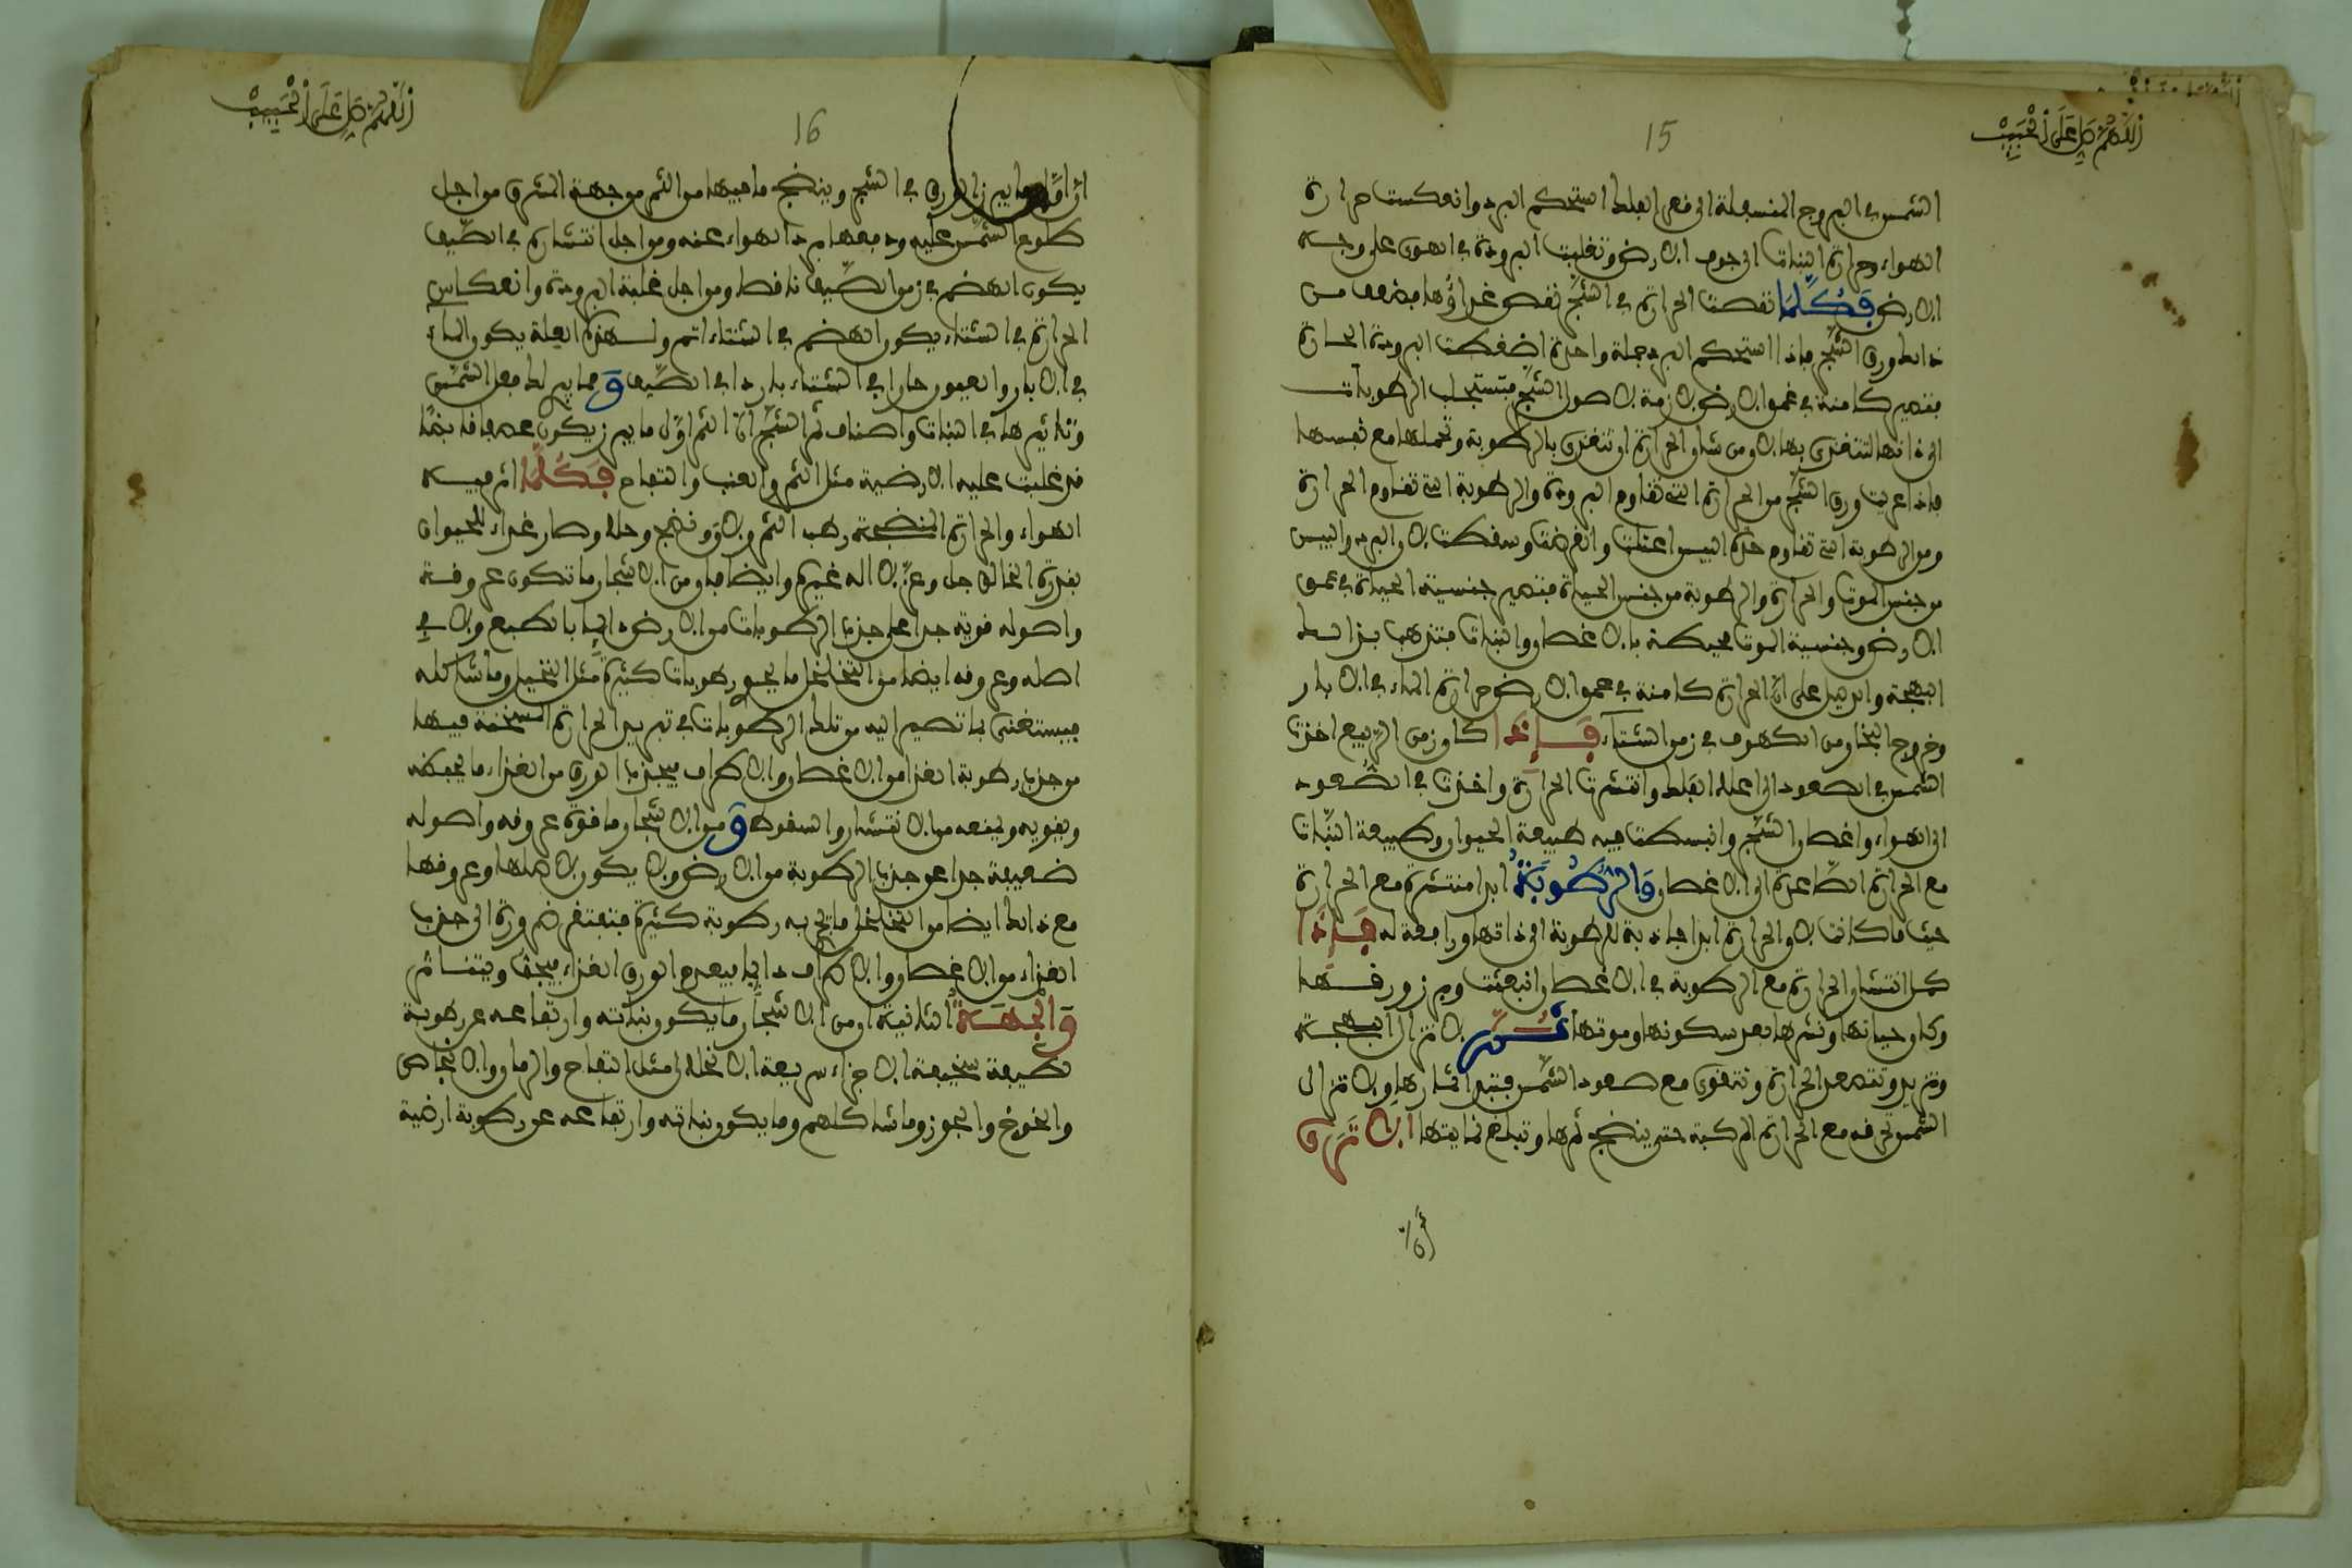 اللهم صل على الحبيب
15
الشمس في البروج المنسفلة الى قعر الفلك استحكم البرد وانعكست حرارة
الهواء وحرارة النبات الى جوف الارض وتغلبت البرودة في الهوى على وجه
الارض فكلما نقصت الحرارة في الشجر نقص غداؤها فضعف من
ذالك ورق الشجر فاذا استحكم البرد جملة واحدة اضغكت البرودة الحارة
فتصير كامنة في عمق الارض لازمة لاصول الشجر فتستجلب الرطوبات
الى ذاتها لتتغذى بها لان من شان الحرارة ان تتغذى بالرطوبة وتحملها مع نفسها
فاذا عريت ورق الشجر من الحرارة التي تقاوم البرودة والرطوبة التي تقاوم الحرارة
ومن الرطوبة التي تقاوم حدة اليبس اعتلت وانقرضت وسقطت لان البرد واليبس
من جنس الموت والحرارة والرطوبة من جنس الحياة فتصير جنسية الحياة في عمق
الارض وجنسية الموت محيطة بالاغصان والنبات فتذهب بذالك
البهجة والدليل على ان الحرارة كامنة في عمق الارض حرارة الماء في الابار
وخروج البخار من الكهوف في زمن الشتاء فاذا كان زمن الربيع اخذت
الشمس في الصعود الى اعلا الفلك وانتشرت الحرارة واخذت في الصعود
الى الهواء واغصان الشجر وانبسطت فيه طبيعة الحيوان وطبيعة النبات
مع الحرارة الصاعدة الى الاغصان والرطوبة ابدا منتشرة مع الحرارة
حيث ما كانت لان الحرارة ابدا جاذبة للرطوبة الى ذاتها ورافعة له فاذا
كمل انتشار الحرارة مع الرطوبة في الاغصان انبعثت وبرز ورقها
وكان حياتها ونشرها بعد سكونها وموتها ثم لا تزال البهجة
وتزيد وتصعد الحرارة وتتقوى مع صعود الشمس فتبدا ثمارها ولا تزال
الشمس تحرقه مع الحرارة المركبة حتى ينضج ثمرها وتبلغ غايتها الا ترى
أن
اللهم صل على الحبيب
16
ان اول ما يبرز الورق في الشجر وينضج ما فيها من الثمر من جهة الشرق من اجل
طلوع الشمس عليه ودفعها برد الهواء عنه ومن اجل انتشارة في الصيف
يكون الهضم في زمن الصيف ناقصا ومن اجل غلبة البرودة وانعكاس
الحرارة في الشتاء يكون الهضم في الشتاء اتم ولهذه العلة يكون الماء
في الابار والعيون حارا في الشتاء باردا في الصيف ومما يدلك فعل الشمس
وتاثيرها في النبات واصناف ثمر الشجر ان الثمر اول ما يبرز يكون عفصا قابضا
قد غلبت عليه الارضية مثل الثمر والعنب والتفاح فكلما اثر فيه
الهواء والحرارة المنضجة رطب الثمر ولان ونضج وحلا وصار غداء للحيوان
بقدرة الخالق جل وعز لا اله غيره وايضا فان من الاشجار ما تكون عروقه
واصوله قوية جدا على جذب الرطوبات من الارض دايما بالطبع ولان في
اصله وعروقه ايضا من التخلخل ما يحوي رطوبات كثيرة مثل النخيل وما شاكله
فيستغنى بما تصير اليه من تلك الرطوبات في تبريد الحرارة المسخنة فيها
من جذب رطوبة الغذا من الاغصان والاطراف فيجذب الورق من الغذاء ما يحفظه
ويقويه ويمنعه من الانتشار والسقوط ومن الاشجار ما قوة عروقه واصوله
ضعيفة جدا عن جذب الرطوبة من الارض ولا يكون لاصلها وعروقها
مع ذالك ايضا من التخلخل ما تجري به رطوبة كثيرة فتفتقر ضرورة الى جذب
الغذاء من الاغصان والاطراف دايما فيعدم الورق الغذاء فيجف ويتناثر
والجهة الثانية ان من الاشجار ما يكون نباته وارتفاعه عن رطوبة
لطيفة سخيفة الاجزاء سريعة الانحلال مثل التفاح والرمان والاجاص
والخوخ والجوز وما شاكلهم وما يكون نباته وارتفاعه عن رطوبة ارضية